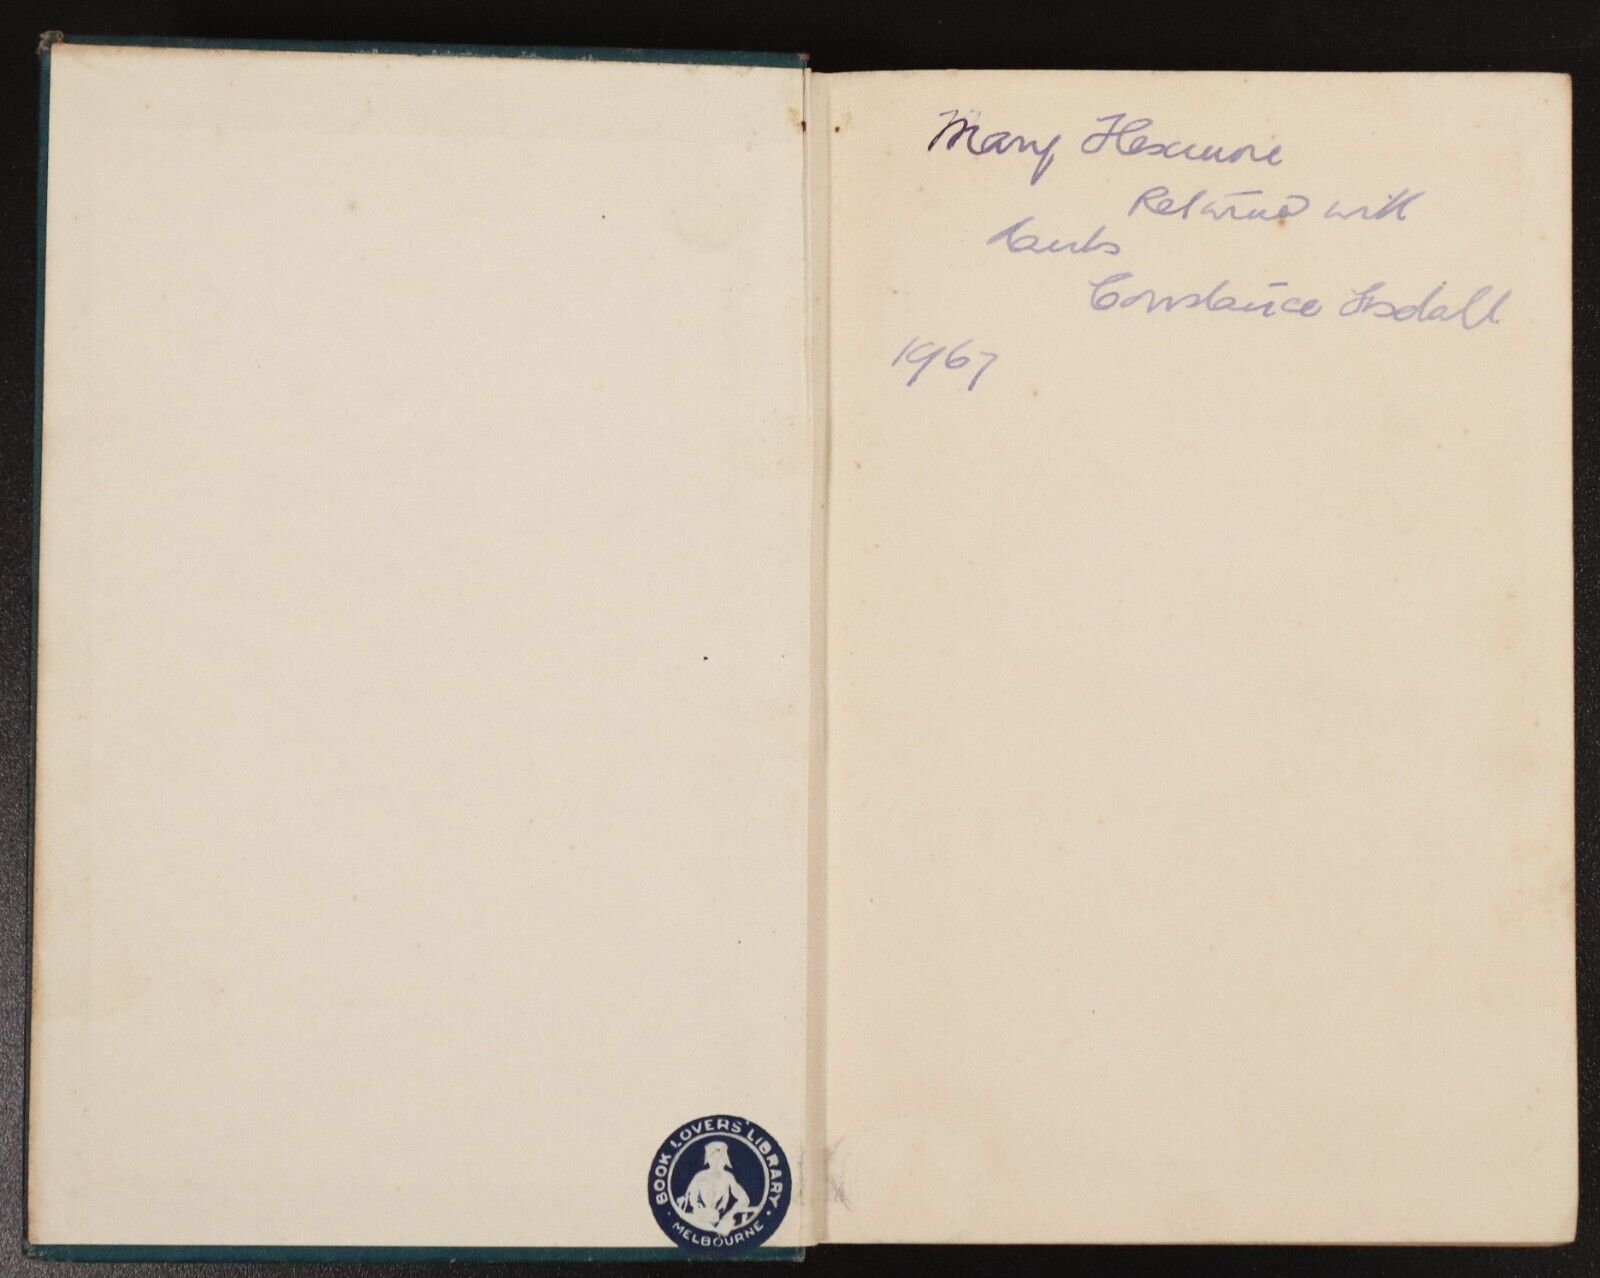 Mary Hexmore
Returned with
thanks
Constance Tisdall
1967
BOOK LOVERS' LIBRARY
MELBOURNE